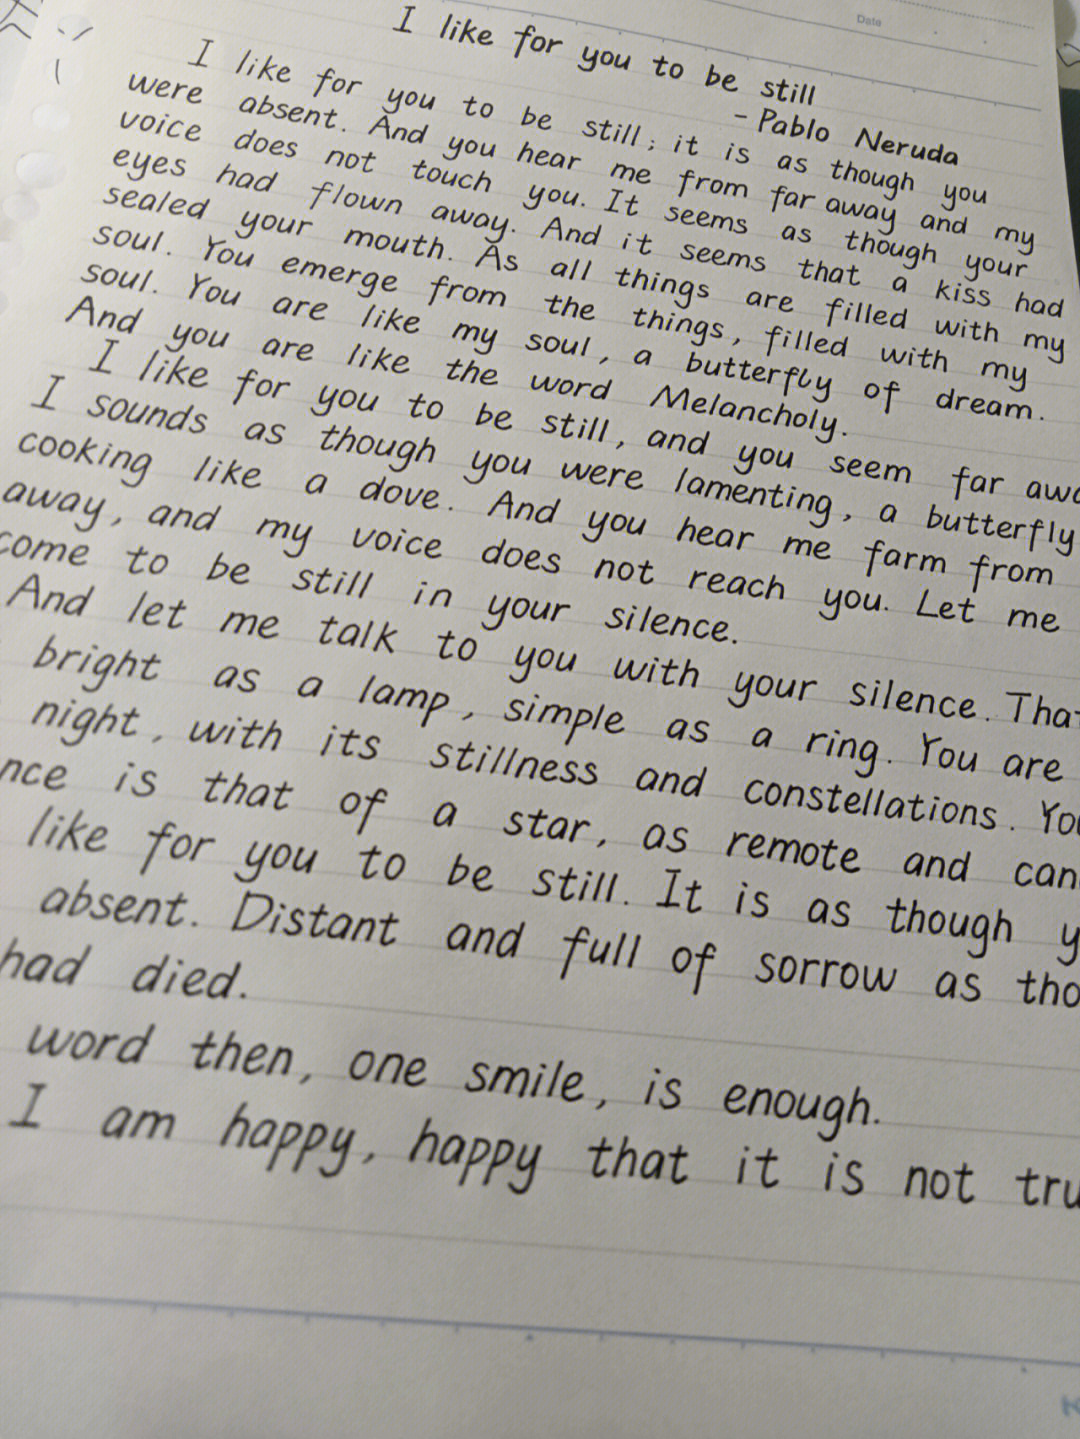 Date
I like for you to be still
- Pablo Neruda
I like for you to be still; it is as though you
were absent. And you hear me from far away and my
voice does not touch you. It seems as though your
eyes had flown away. And it seems that a kiss had
sealed your mouth. As all things are filled with my
soul. You emerge from the things, filled with my
soul. You are like my soul, a butterfly of dream.
And you are like the word Melancholy.
I like for you to be still, and you seem far
I sounds as though you were lamenting, a butterfly
cooking like a dove. And you hear me farm from
away, and my voice does not reach you. Let me
come to be still in your silence.
And let me talk to you with your silence.
bright as a lamp, simple as a ring. You are
night, with its stillness and constellations.
is that of a star, as remote and
like for you to be still. It is as though
absent. Distant and full of sorrow as
had died.
word then, one smile, is enough.
I am happy, happy that it is not